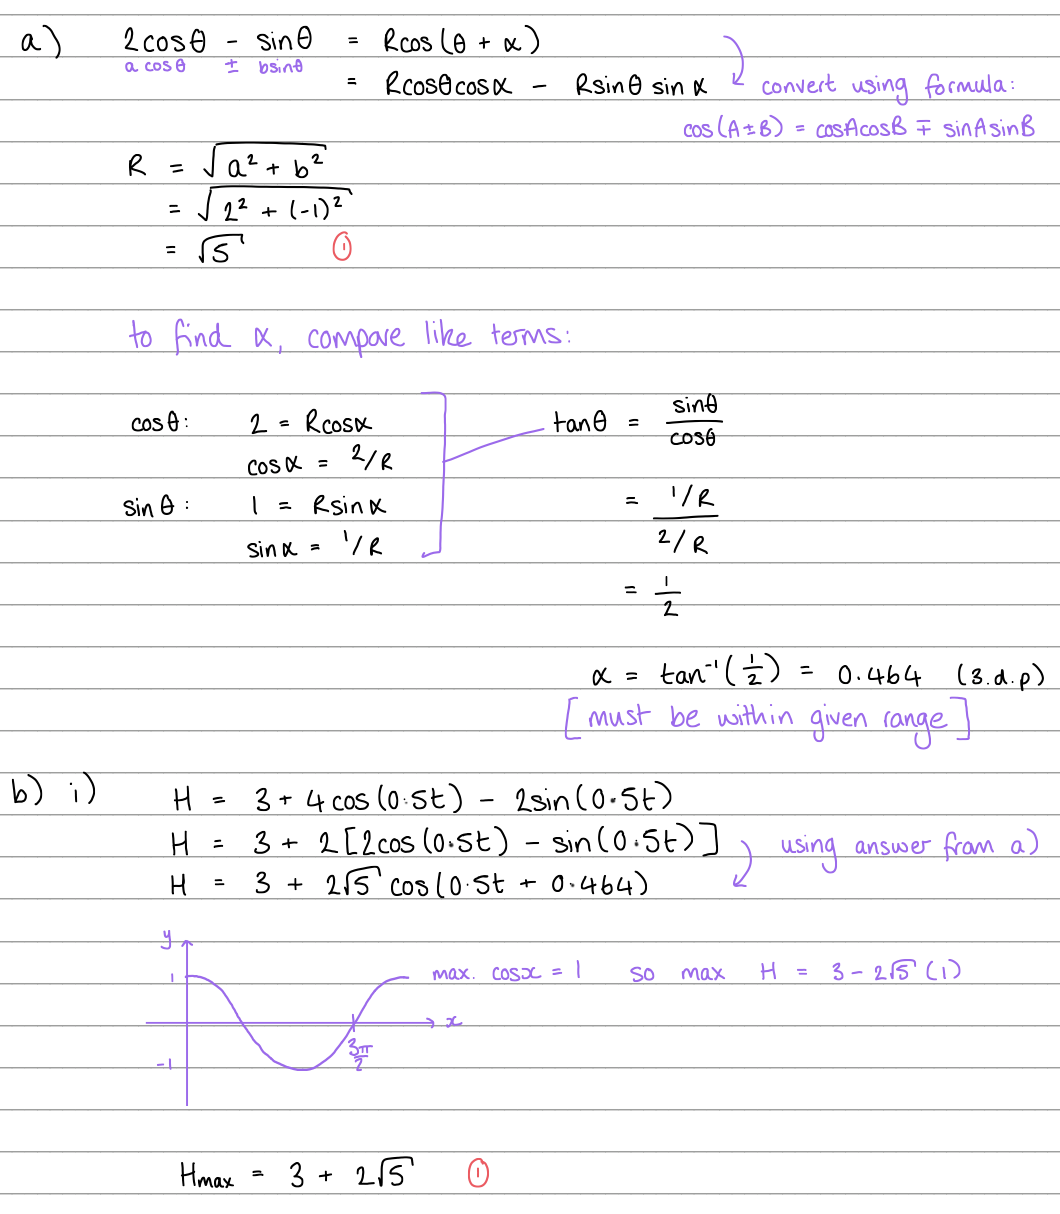 a) 2cosθ - sinθ = Rcos(θ + α)
a cosθ ± bsinθ
= Rcosθcosα - Rsinθ sinα convert using formula:
cos(A±B) = cosAcosB ∓ sinAsinB
R = √(a² + b²)
= √(2² + (-1)²)
= √5 ①
to find α, compare like terms:
cosθ: 2 = Rcosα
cosα = 2/R
sinθ: 1 = Rsinα
sinα = 1/R
tanθ = sinθ/cosθ
= (1/R)/(2/R)
= 1/2
α = tan⁻¹(1/2) = 0.464 (3.d.p)
[must be within given range]
b) i) H = 3 + 4cos(0.5t) - 2sin(0.5t)
H = 3 + 2[2cos(0.5t) - sin(0.5t)] using answer from a)
H = 3 + 2√5 cos(0.5t + 0.464)
y
1 max. cosx = 1 so max H = 3 - 2√5 (1)
x
3π/2
-1
Hmax = 3 + 2√5 ①